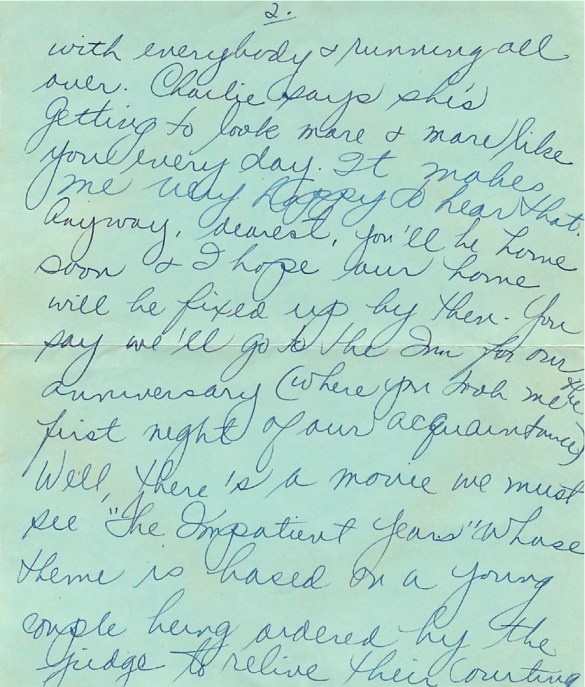 2.
with everybody & running all
over. Charlie says she's
getting to look more & more like
you every day. It makes
me very happy to hear that.
Anyway, dearest, you'll be home
soon & I hope our home
will be fixed up by then. You
say we'll go to the Inn for our
anniversary (where you took me the
first night of our acquaintance)
Well, there is a movie we must
see "The Impatient Years" whose
theme is based on a young
couple being ordered by the
judge to relive their courting